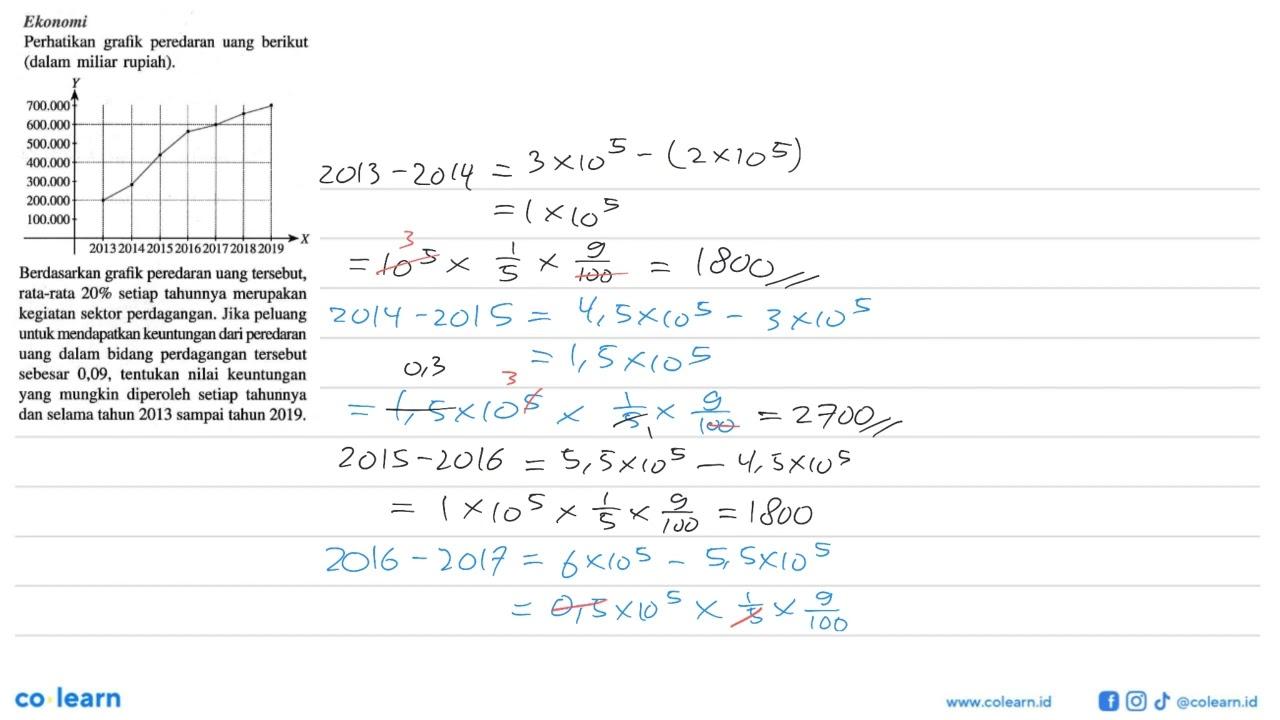 Ekonomi
Perhatikan grafik peredaran uang berikut
(dalam miliar rupiah).
Y
700.000
600.000
500.000
400.000
300.000
200.000
100.000
X
2013 2014 2015 2016 2017 2018 2019
Berdasarkan grafik peredaran uang tersebut,
rata-rata 20% setiap tahunnya merupakan
kegiatan sektor perdagangan. Jika peluang
untuk mendapatkan keuntungan dari peredaran
uang dalam bidang perdagangan tersebut
sebesar 0,09, tentukan nilai keuntungan
yang mungkin diperoleh setiap tahunnya
dan selama tahun 2013 sampai tahun 2019.
2013 - 2014 = 3 × 10^5 - (2 × 10^5)
= 1 × 10^5
3
= 10^5 × 1/5 × 9/100 = 1800 //
2014 - 2015 = 4,5 × 10^5 - 3 × 10^5
= 1,5 × 10^5
0,3 3
= 1,5 × 10^5 × 1/5 × 9/100 = 2700 //
1
2015 - 2016 = 5,5 × 10^5 - 4,5 × 10^5
= 1 × 10^5 × 1/5 × 9/100 = 1800
2016 - 2017 = 6 × 10^5 - 5,5 × 10^5
= 0,5 × 10^5 × 1/5 × 9/100
co learn
www.colearn.id
@colearn.id